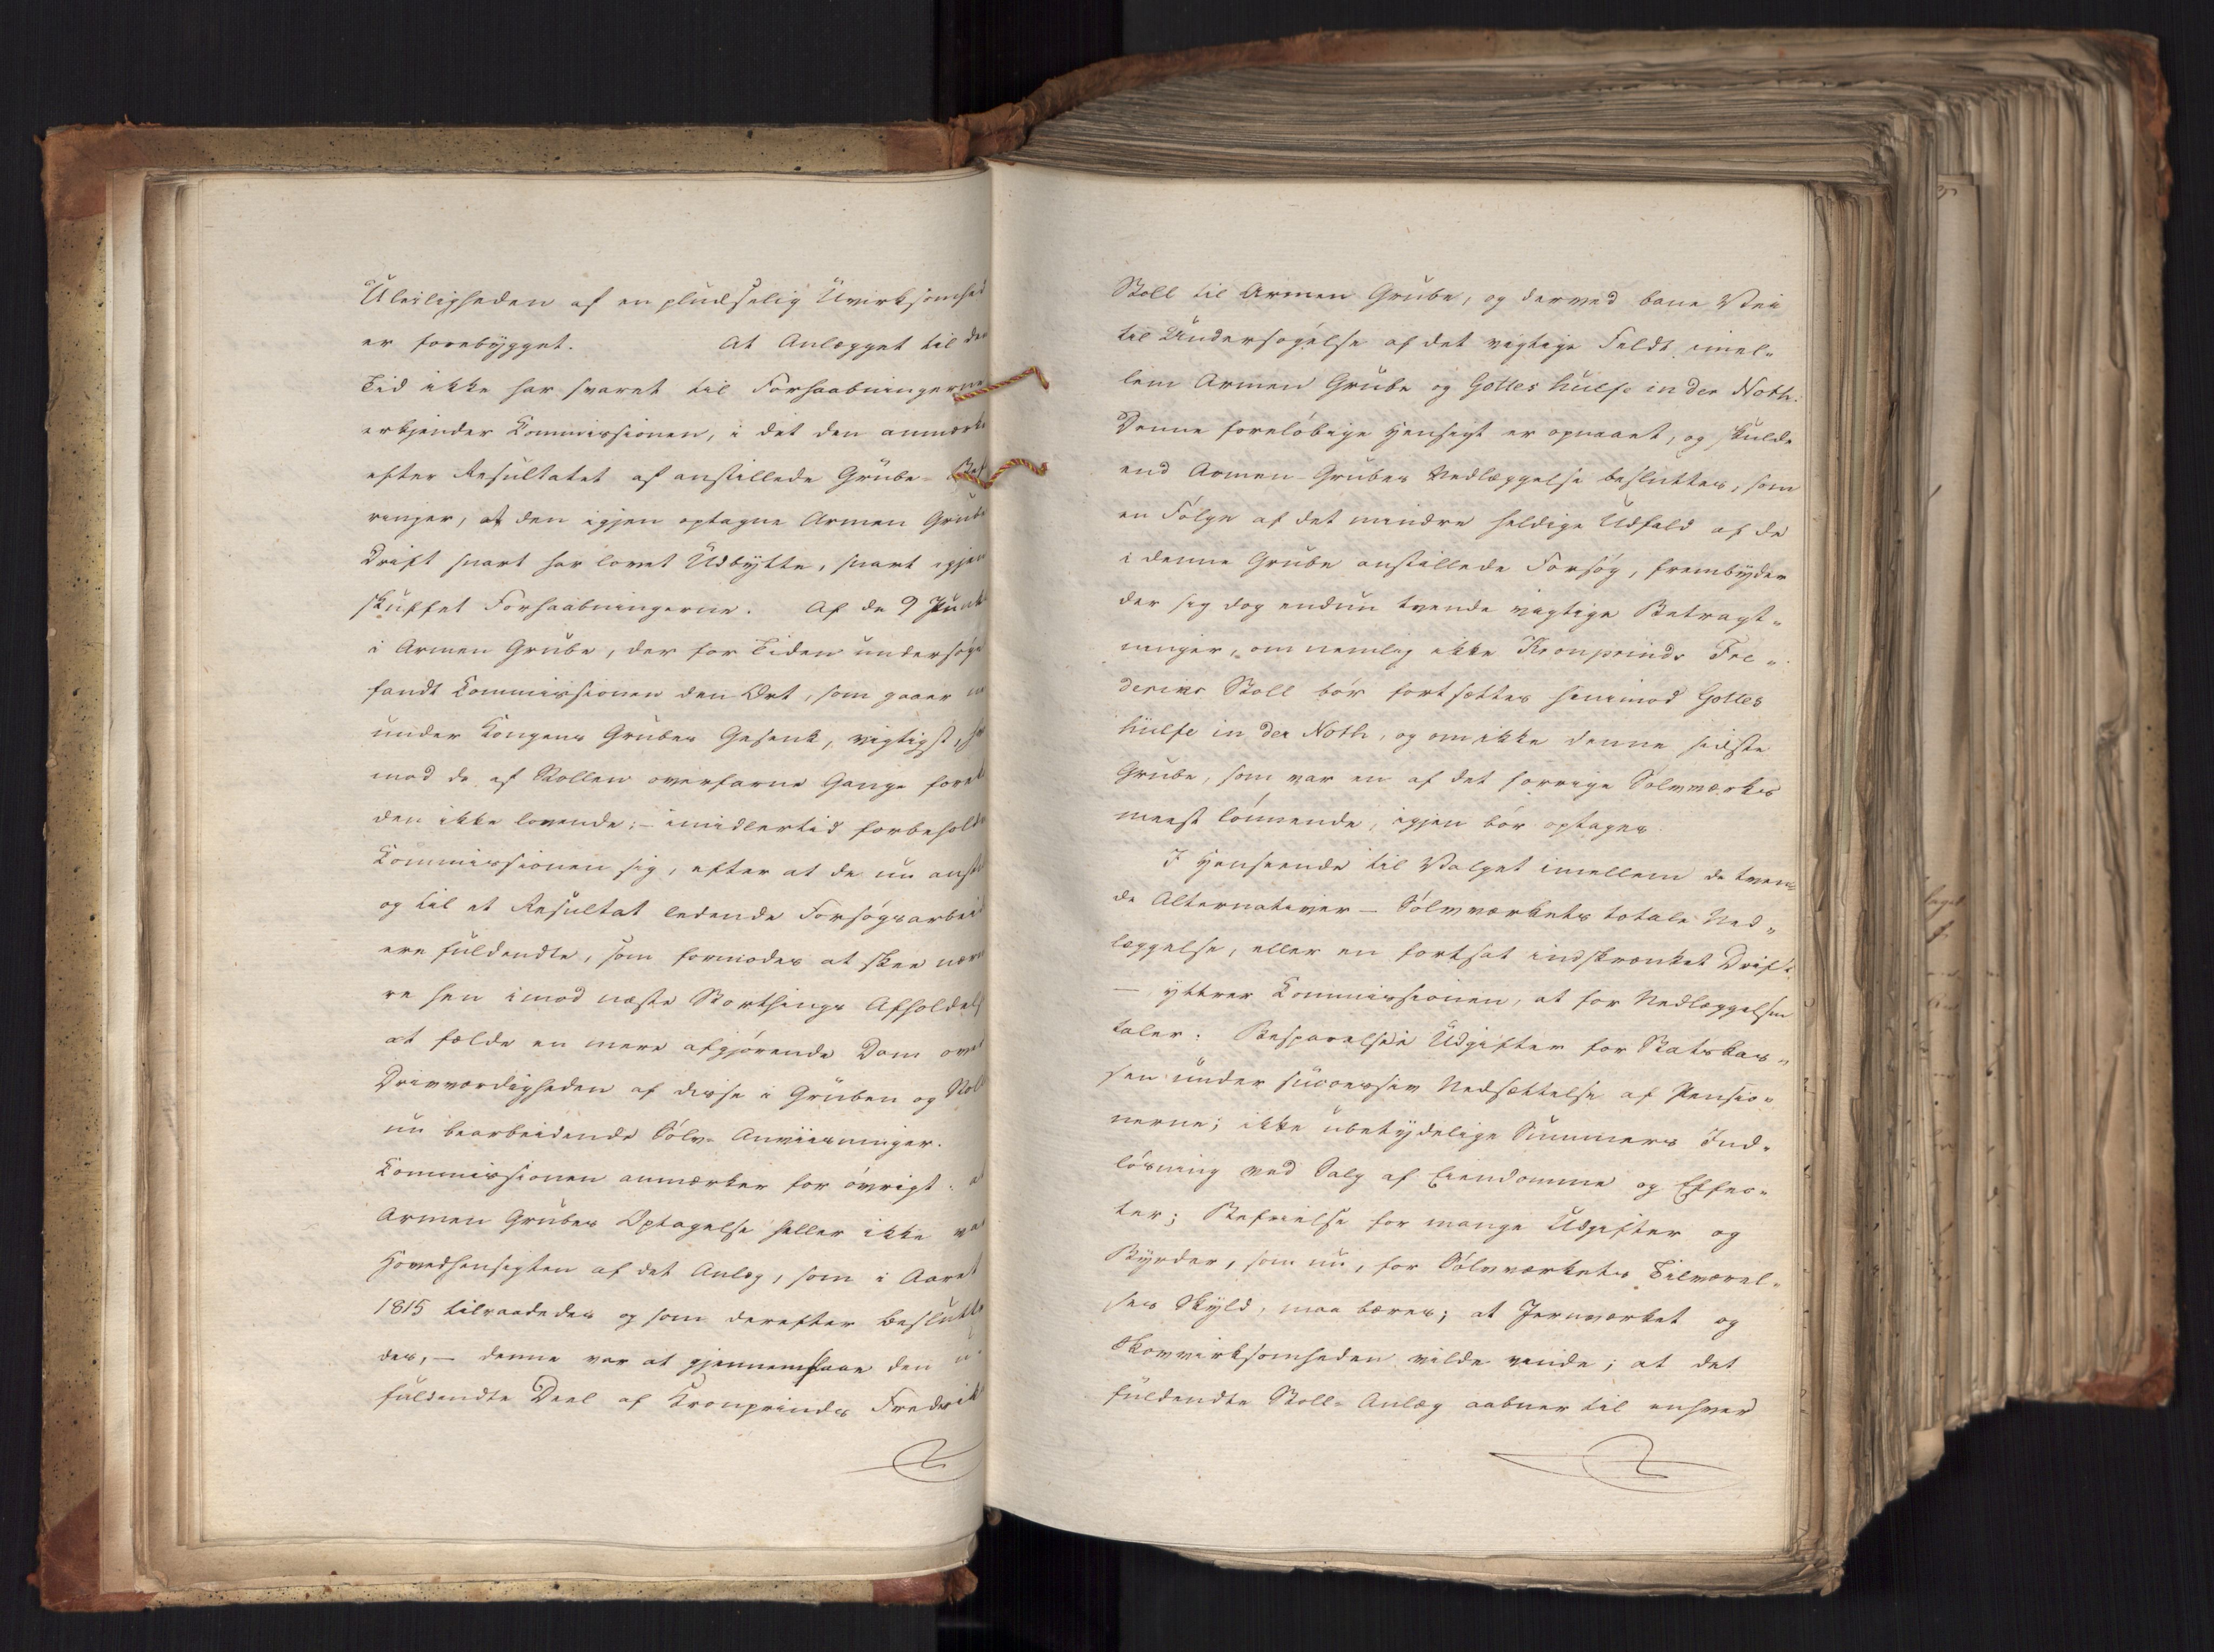 Uleiligheden af en pludselig Uvirksomhed
er forebygget. At Anlægget til den
Tid ikke har svaret til Forhaabningerne
erkjender Kommissionen, i det den anmærke
efter Resultatet af anstillede Grube-Bef
ringer, at den igjen optagne Armen Grube
Drift snart har lovet Udbytte, snart igjen
skuffet Forhaabningerne. Af de 9 Punkt
i Armen Grube, der for Tiden undersøge
fandt Kommissionen den Ort, som gaaer
under Kongens Grubes Gesenk, vigtigst,
mod de af Stollen overfarne Gange
den ikke lovende; – imidlertid forbeholdt
Kommissionen sig, efter at de nu anst
og til et Resultat ledende Forsøgsarbeid
ere fuldendte, som formodes at skee nærme
re hen imod næste Storthings Afholdels
at fælde en mere afgjørende Dom over
Drivværdigheden af disse i Gruben og Stoll
nu bearbeidende Sølv-Anviisninger.
Kommissionen anmærker for øvrigt, at
Armen Grubes Optagelse heller ikke var
Hovedhensigten af det Anlæg, som i Aaret
1815 tilraadedes og som derefter beslutte
des, – denne var at gjennemslaae den u-
fuldendte Deel af Kronprinds Frederiks
Stoll til Armen Grube, og derved bane Vei
til Undersøgelse af det vigtige Feldt imel-
lem Armen Grube og Gottes hülfe in der Noth.
Denne foreløbige Hensigt er opnaaet, og skulde
end Armen-Grubes Nedlæggelse besluttes, som
en Følge af det mindre heldige Udfald af de
i denne Grube anstillede Forsøg, frembyder
der sig dog endnu tvende vigtige Betragt-
ninger, om nemlig ikke Kronprinds Fre-
deriks Stoll bør fortsættes henimod Gottes
hülfe in der Noth, og om ikke denne sidste
Grube, som var en af det forrige Sølvværkes
meest lønnende, igjen bør optages.
I Henseende til Valget imellem de tven-
de Alternativer – Sølvværkets totale Ned-
læggelse, eller en fortsat indskrænket Drift
– yttrer Kommissionen, at for Nedlæggelsen
taler: Besparelse i Udgifter for Statskas-
sen under successiv Nedsættelse af Pensio-
nerne; ikke ubetydelige Summers Ind-
løsning ved Salg af Eiendomme og Effec-
ter; Befrielse for mange Udgifter og
Byrder, som nu, for Sølvværkets Tilværel-
ses Skyld, maa bæres; at Jernværket og
Skovvirksomheden vilde vinde; at det
fuldendte Stoll-Anlæg aabner til enhver